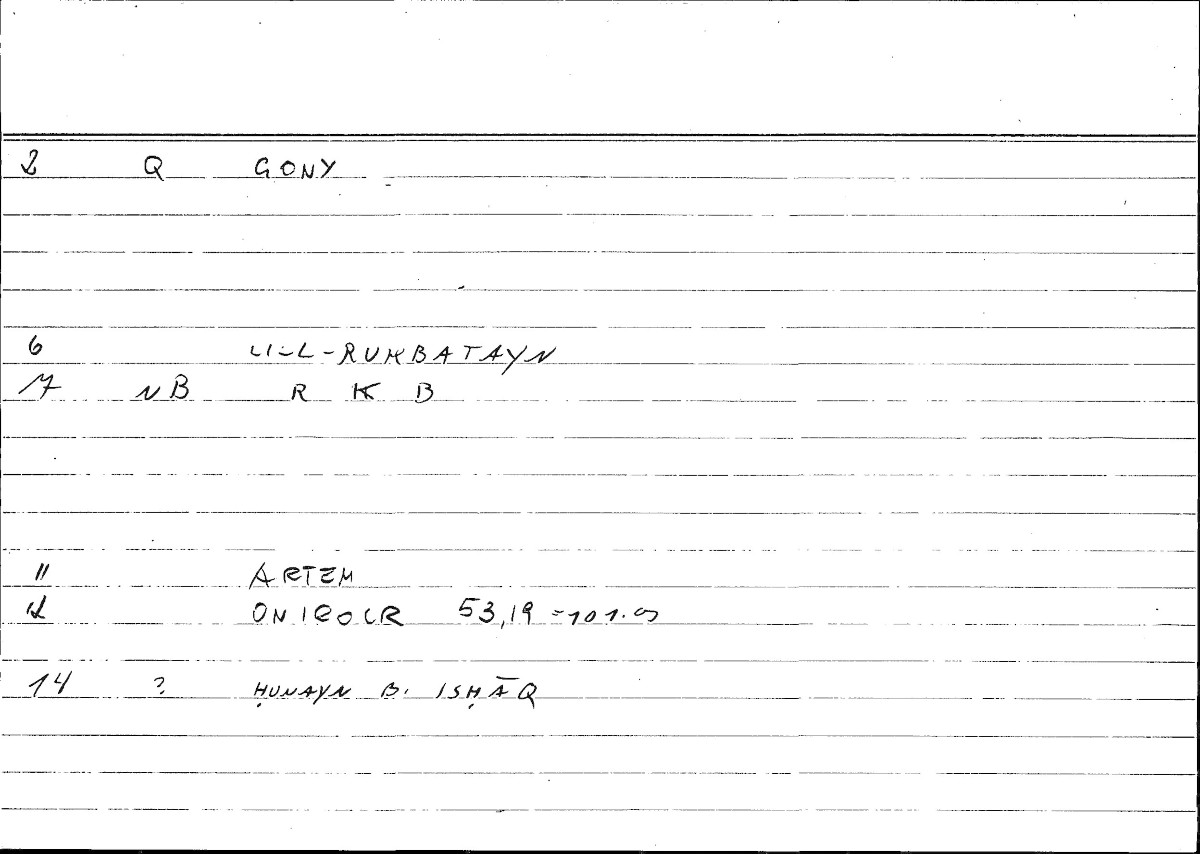 2 Q GONY
6 LI-L-RUKBATAYN
17 NB R K B
11 ARTEM
12 ONIROCR 53,19 =101.
14 ? ḤUNAYN B. ISḤĀQ